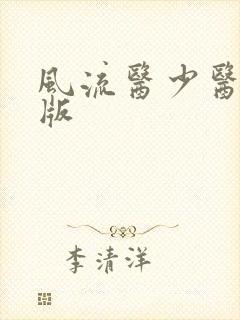 風流醫少醫
版
李清洋